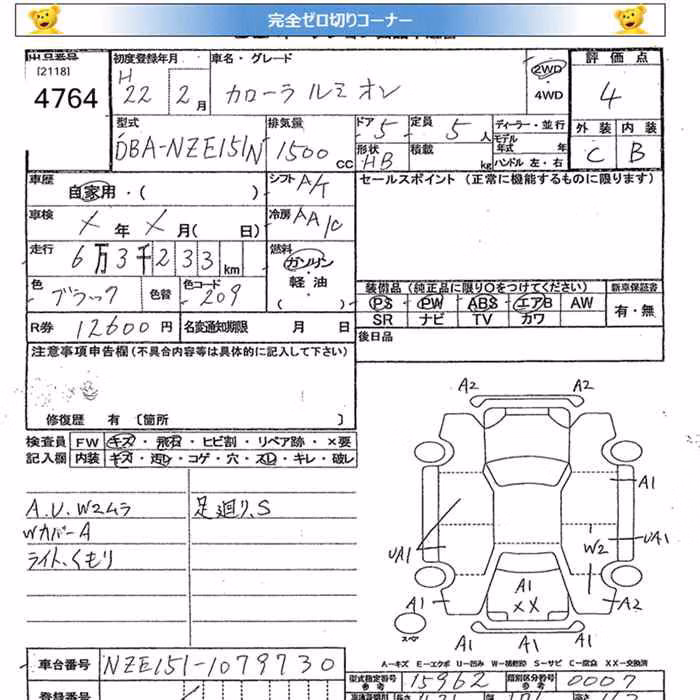 完全ゼロ切りコーナー
出品番号
[2118]
4764
初度登録年月
H 22 年 2 月
車名・グレード
カローラルミオン
2WD
・
4WD
評価点
4
外装 内装
C B
型式
DBA-NZE151N
排気量
1500 cc
ドア 5
定員 5 人
形状 HB
積載 kg
ディーラー・並行
モデル年式 年
ハンドル 左・右
車歴
自家用・( )
シフト A/T
セールスポイント (正常に機能するものに限ります)
車検
X 年 X 月( 日)
冷房 AA/C
走行
6万3千233 km
燃料
ガソリン
・
軽油
( )
色
ブラック
色替
色コード
209
装備品 (純正品に限り○をつけてください)
新車保証書
PS PW ABS エアB AW
SR ナビ TV カワ
有・無
R券 12600円
名変通知期限 月 日
後日品
注意事項申告欄(不具合内容等は具体的に記入して下さい)
修復歴 有 〔箇所 〕
検査員
記入欄
FW キズ・飛石・ヒビ割・リペア跡・×要
内装 キズ・汚レ・コゲ・穴・スレ・キレ・破レ
A.U.W2ムラ
Wカバ-A
ライト、くもり
足廻り、S
A2
A2
A1
UA1
UA1
W2
A1
A1
XX
A2
A1 A1 A1
スペア
A-キズ E-エクボ U-凹み W-補修跡 S-サビ C-腐食 XX-交換済
車台番号
NZE151-1079730
型式指定番号 15962
類別区分番号 0007
登録番号